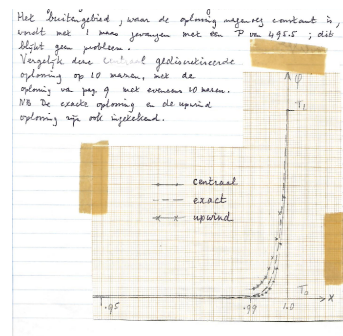 Het buitengebied, waar de oplossing nagenoeg constant is,
wordt met 1 maas gevangen met een P van 495.5; dit
blijkt geen probleem.
Vergelijk deze centraal gediscretiseerde
oplossing op 10 mazen, met de
oplossing van pag. 9 met eveneens 10 mazen.
NB De exacte oplossing en de upwind
oplossing zijn ook ingetekend.
φ
T₁
centraal
exact
upwind
T₀
.95
.99
1.0
x